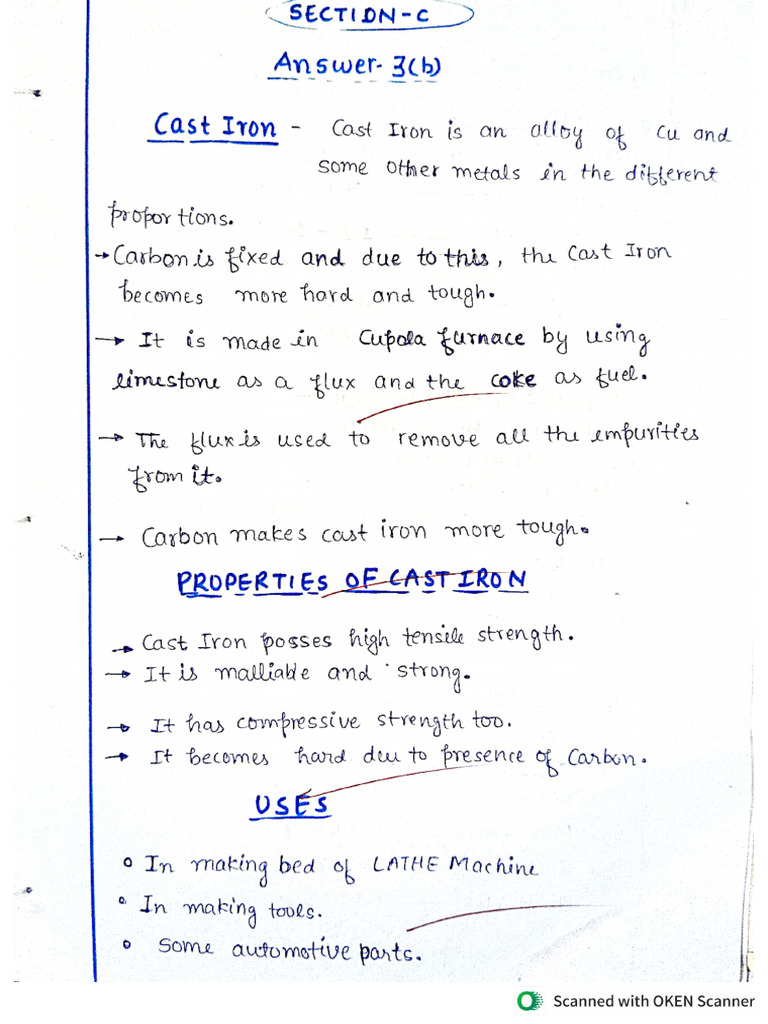 SECTION-C
Answer- 3(b)
Cast Iron - Cast Iron is an alloy of Cu and
some other metals in the different
proportions.
→ Carbon is fixed and due to this, the Cast Iron
becomes more hard and tough.
→ It is made in Cupola furnace by using
limestone as a flux and the coke as fuel.
→ The flux is used to remove all the empurities
from it.
→ Carbon makes cast iron more tough.
PROPERTIES OF CAST IRON
→ Cast Iron posses high tensile strength.
→ It is malliable and strong.
→ It has compressive strength too.
→ It becomes hard due to presence of Carbon.
USES
o In making bed of LATHE Machine
o In making tools.
o Some automotive parts.
Scanned with OKEN Scanner